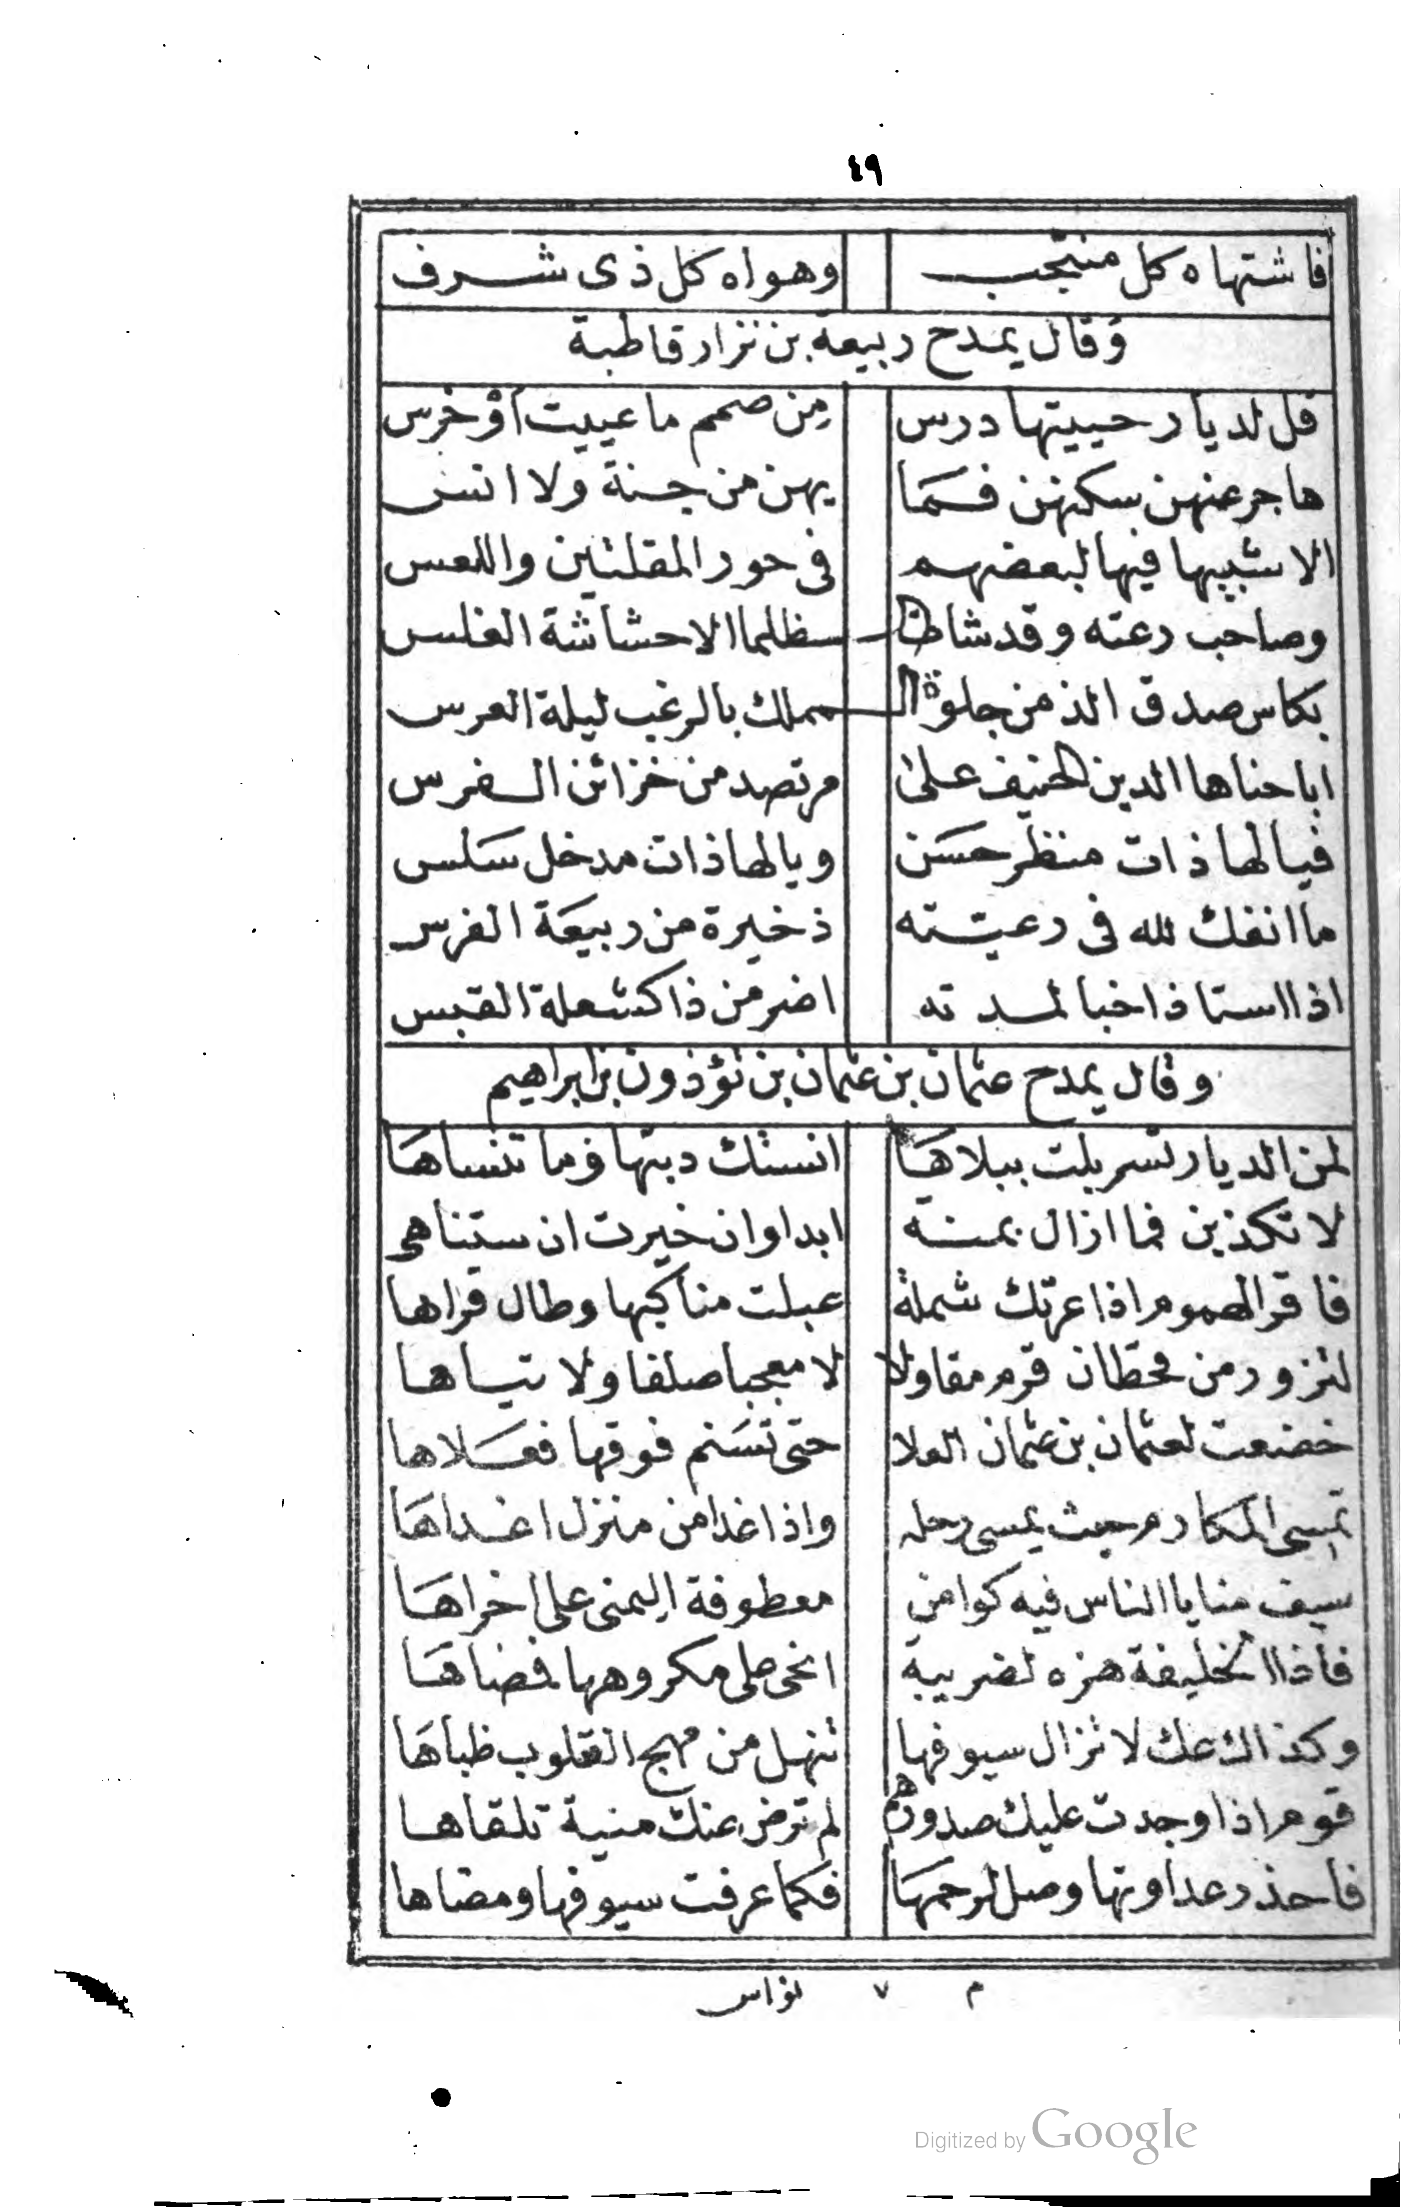 ٤٩
فاشتهاه كل منتجب وهواه كل ذى شرف
وقال يمدح ربيعة بن نزار قاطبة
قل لديار حييتها درس مِن صمم ما عييت أوْ خرس
هاجر عنهن سكنهن فَمَا بهن من جنة ولا انس
الا شبيها فيها لبعضهم فى حور المقلتين واللعس
وصاحب رعته وقد شاط الـظلما الا حشاشة الغلس
بكاس صدق الذ من جلوة الـمملك بالرغب ليلة العرس
اباحناها الدين الحنيف على مرتصد من خزائن الفرس
فيالها ذات منظر حسَن ويالها ذات مدخل سَلس
ما انفك لله فى رعيته ذخيرة من ربيعَة الفرس
اذا استاذ اخبا لمدته اضرمن ذا كشعلة القبس
وقال يمدح عثمان بن عثمان بن نؤذون بن ابراهيم
لمن الديار تسربلت ببلاهَا انستك دبتها وما تنساهَا
لا تكذبن فما ازال بمنة ابدا وان خيرت ان ستناهى
فاقر الهموم اذا عرتك شملة عبلت مناكبها وطال قراها
لتزور من قحطان قرم مقاولا لا معجبا صلفا ولا تياها
خضعت لعثمان بن عثمان العلا حتى تسَنم فوقها فعَلاها
تمسى المكارم حيث يمسى رحله واذا غدا من منزل اغداهَا
سيف منايا الناس فيه كوامن معطوفة اليمنى على اخراهَا
فاذا الخليفة هزه لضريبة انحى على مكروهها فضاهَا
وكذاك عك لا تزال سيوفها تنهل من مهج القلوب ظباهَا
قوم اذا وجدت عليك صدورهم لم ترض عنك منية تلقاها
فاحذر عداوتها وصل لرحمهَا فكما عرفت سيوفها ومضاها
م ٧ نواس
Digitized by Google